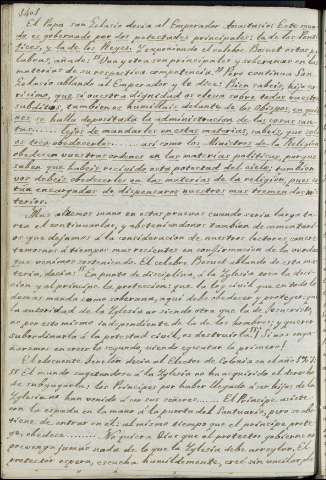 El Papa san Gelasio decia al Emperador Anastasio: Este mun-
do es gobernado por dos potestades principales: la de los Pontí-
fices, y la de los Reyes. Y exponiendo el celebre Bosuet estas pa-
labras, añade: "Una y otra son principales y soberanas en las
materias de su respectiva competencia." Pero continua San
Gelasio hablando al Emperador, y le dice: Bien sabeis, hijo ca-
risimo, que si vuestra dignidad os eleva sobre todos vuestros
subditos, tambien os humillais delante de los Obispos, en quie-
nes se halla depositada la administracion de las cosas san-
tas...... lejos de mandarles en estas materias, sabeis que sois
en obedecerles....... asi como los Ministros de la Religion
obedecen vuestras ordenes en las materias politicas, porque
saben que habeis recibido esta potestad del cielo, tambien
vos debeis obedecerles en las materias de la religion, pues es-
tán encargados de dispensaros nuestros mas tremendos mis-
terios.
Mas alcemos mano en estas pruevas cuando seria larga ta-
rea el continuarlas, y absteniendonos tambien de comentari-
os que dejamos á la consideracion de nuestros lectores, cante-
remos á tiempos mas recientes la confirmacion de la verdad
que venimos sosteniendo. El celebre Bosuet hablando de esta ma-
teria, decia: "En punto de disciplina, á la Yglesia toca la deci-
sion y al principe la proteccion: que la ley civil que en todo lo
demas manda como soberana, aqui debe obedecer y proteger: que
la autoridad de la Yglesia no siendo otra que la de Jesucristo,
es por esto mismo independiente de la de los hombres; y querer
subordinarla á la potestad civil, es destruirla."
El elocuente Fenelon decia al Elector de Colonia en el año 1707:
"El mundo sugetandose á la Yglesia no ha adquirido el derecho
de subyugarla: los Principes por haber llegado á ser hijos de la
Yglesia no han venido á ser sus señores...... El Principe asiste
con la espada en la mano á la puerta del Santuario, pero se abs-
tiene de entrar en él: al mismo tiempo que el principe prote-
ge, obedece....... No quiera Dios que el protector gobierne ni
prevenga jamás nada de lo que la Yglesia debe arreglar. El
protector espera, escucha humildemente, cree sin vacilar,